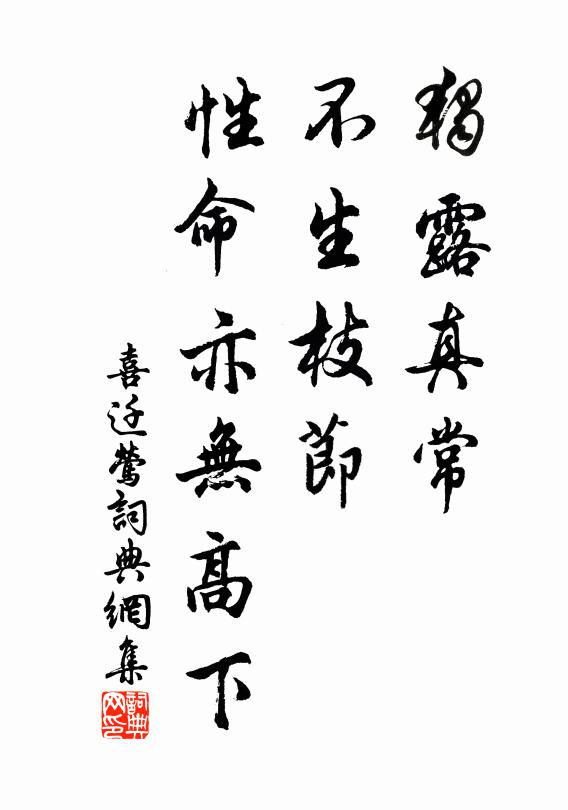 獨露真常
不生枝節
性命亦無高下
喜迁鶯詞典網集
詞典網印